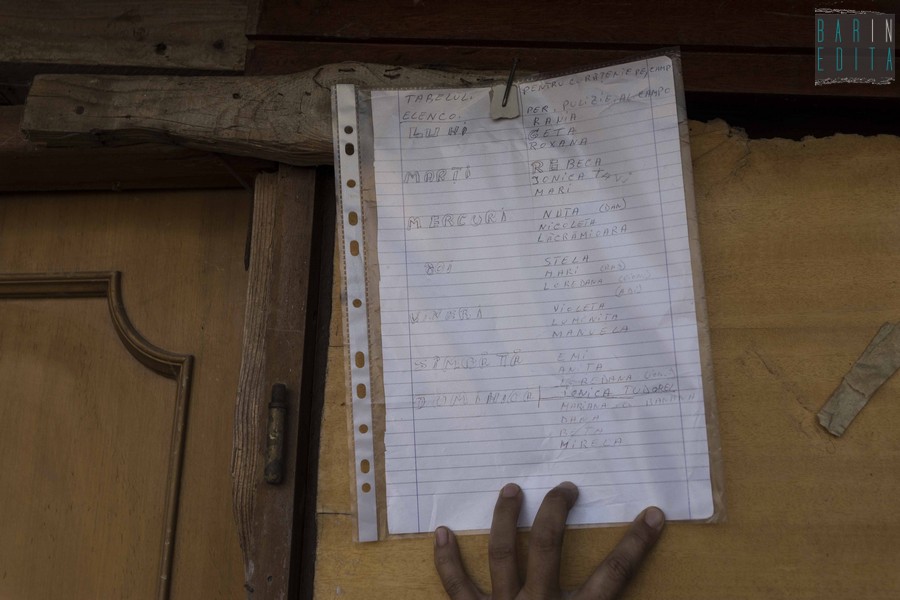 BARIN
EDITA
TABELUL. PENTRU CURĂȚENIE PE CAMP
ELENCO. PER. PULIZIE AL CAMPO
LUNI RADIA
GETA
ROXANA
MARȚI REBECA
IONICA
MARI
MERCURI NUTA
NICOLETA
LĂCRĂMIOARA
JOI STELA
MARI
LOREDANA
VINERI VIOLETA
LUMINITA
MANUELA
SÎMBĂTĂ EMI
ANITA
LOREDANA
DUMINICA IONICA TUDOREL
MARIANA
DANA
MIRELA